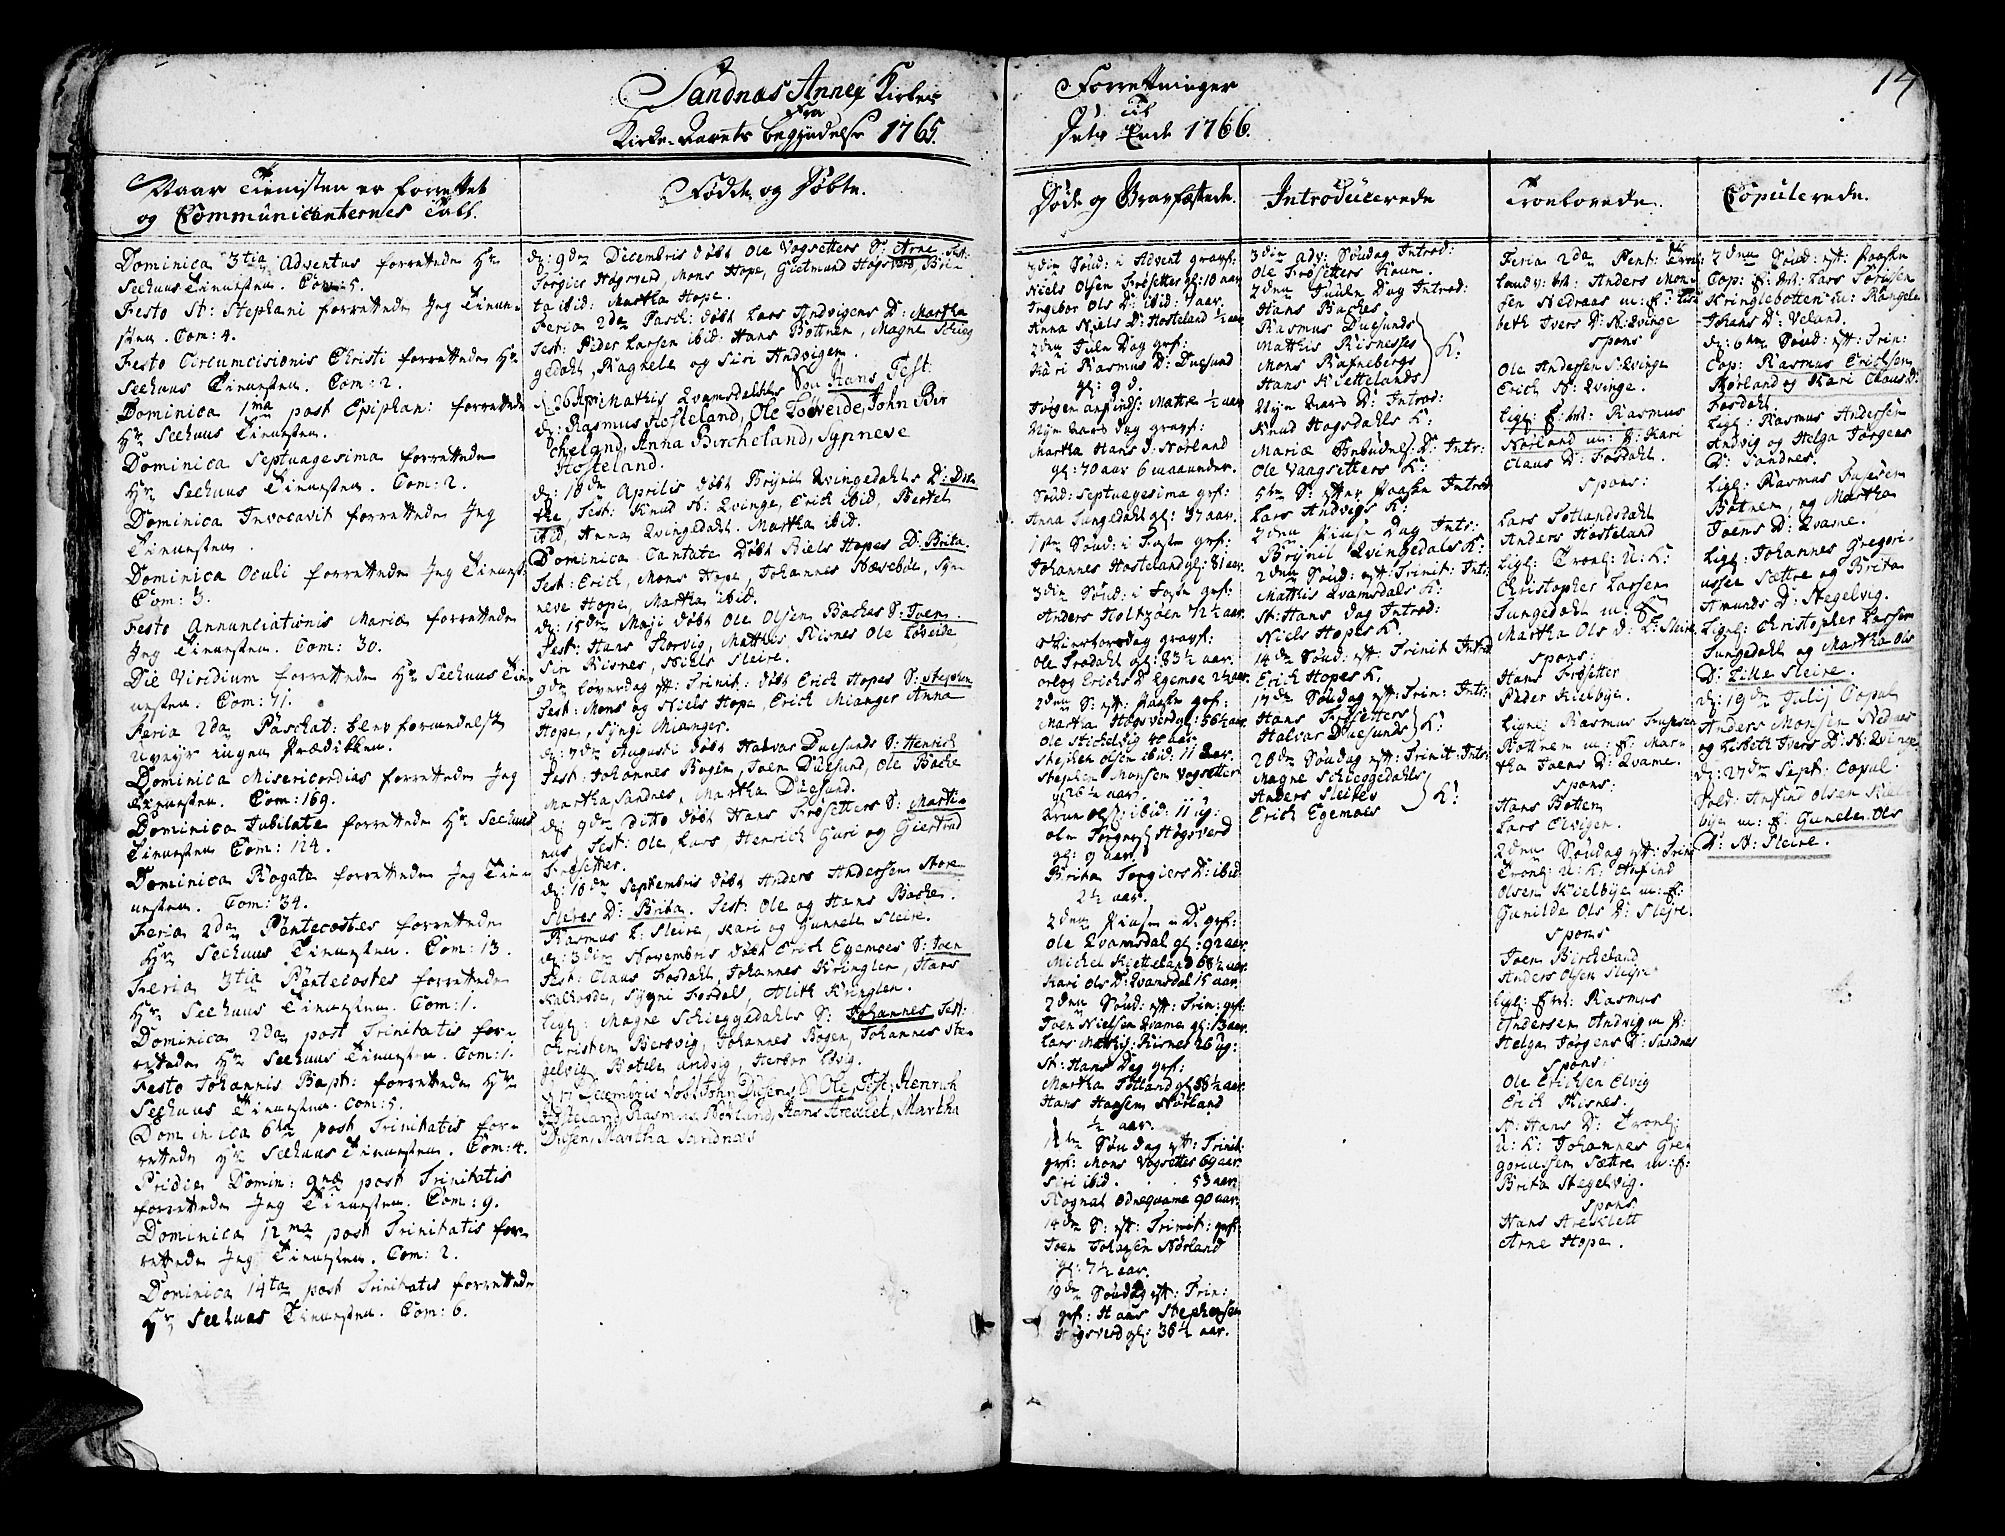 Sandnæs Annex Kirkes
Fra
Kirke-Aarets begyndelse 1765.
Forrettninger
Til
Dets Ende 1766.
14
Naar Tienisten er forrettet
og Communicanternes Tall.
Dominica 3tia Adventus forrettede Hr
Seehuus Tienesten. Com: 5.
Festo St: Stephani forrettede Jeg Tienne-
sten. Com: 4.
Festo Circumcisionis Christi forrettede Hr
Seehuus Tienesten. Com: 2.
Dominica 1ma post Epiphan: forrettede
Hr Seehuus Tienesten.
Dominica Septuagesima forrettede
Hr Seehuus Tienesten. Com: 2.
Dominica Invocavit forrettede Jeg
Tienesten.
Dominica Oculi forrettede Jeg Tienest:
Com: 3.
Festo Annunciationis Mariæ forrettede
Jeg Tienesten. Com: 30.
Die Viridium forrettede Hr Seehuus Tie-
nesten. Com: 71.
Feria 2da Paschat:
Dominica Misericordias forrettede Jeg
Tienesten. Com: 169.
Dominica Jubilate forrettede Hr Seehuus
Tienesten Com: 124.
Dominica Rogate forrettede Jeg Tien-
nesten. Com: 34.
Feria 2da Pentecostes forrettede
Hr Seehuus Tienesten. Com: 13.
Feria 3tia Pentecostes forrettede
Hr Seehuus Tienesten. Com: 1.
Dominica 2da post Trinitatis for-
rettede Hr Seehuus Tienesten. Com: 1.
Festo Johannis Bapt: forrettede Hr
Seehuus Tienesten. Com: 5.
Dominica 6ta post Trinitatis for-
rettede Hr Seehuus Tienesten. Com: 4.
Pridie Domin: 9næ post Trinitatis
forrettede Jeg Tienesten. Com: 9.
Dominica 12ma post Trinitatis for-
rettede Jeg Tienesten. Com: 2.
Dominica 14ta post Trinitatis forrettede
Hr Seehuus Tienesten. Com: 6.
Fødde og Døbte.
d: 9de Decembris døbt Ole Vogsetters S: Arne Test:
Torgies Hogsverd Mons Hope, Gietmund Hogsverd, Bri-
ta ibid: Martha Hope.
Feria 2da Pasch: døbt Lars Andvigens D: Martha
Test: Peder Larsen ibid: Hans Bottnen, Magne Schieg
gedahl, Raghele og Siri Andvigen.
d: 26 Apr: Mathis Qvamsdahls Søn Hans, Test:
Rasmus Hosteland, Ole Løveide, John Bir
cheland, Anna Bircheland, Synneve
Hosteland.
d: 18de Aprilis døbt Brynil Qvingedahls D: Dor-
the Test: Knud St: Qvinge, Erich ibid, Bertel
ibid, Anna Qvingedahl. Martha ibid.
Dominica Cantate døbt Niels Hopes D: Brita.
Test: Erich, Mons Hope, Johannes Næsebøe, Syn-
neve Hope, Martha ibid.
d: 15de Maji døbt Ole Olsen Baches S: Joen.
Test: Hans Storvig, Mathis Risnes Ole Løveide,
Siri Risnes, Niels Sleire.
9de løverdag eft: Trinit: døbt Erich Hopes S: Stephen
Test: Mons og Niels Hope, Erich Mianger Anna
Hope, Syngi Mianger.
d: 7de Augusti døbt Halvar Duesunds S: Henrich
Test: Johannes Bogen, Joen Duesund, Ole Bache
Martha Sandnes, Martha Duesund.
d: 9de ditto døbt Hans Frøsetters S: Marti-
nus, Test: Ole, Lars Henrich Guri og Giertrud
Frøsetter.
d: 18de Septembris døbt Anders Andersen Store-
Sleires D: Brita. Test: Ole og Hans Bache.
Rasmus L: Sleire, Kari og Gunnele Sleire.
d: 3die Novembris døbt Erich Egemoes S: Joen
Test: Claus Fosdahl, Johannes Kringlen, Hans
Kalhovde, Sygni Fosdal, Alith Kringlen.
ligl: Magne Schieggedahls S: Johannes Test:
Christen Bersvig, Johannes Bogen, Johannes Ste-
gelvig Botele Andvig, Herbor Elvig.
d: 17 Decembris døbt John Dusens S: Ole Test: Henrich
Hosteland, Rasmus Nørland, Hans Areklet, Martha
Dusen, Martha Sandnæs
Døde og Gravfæstede.
3die Sønd: i Advent gravf:
Niels Olsen Frøsetter gl: 10 aar
Ingebor Ols D: ibid: 7 aar.
Anna Niels D: Hosteland ½ aar
2den Jule Dag grf:
Kari Rasmus D: Duesund
gl: 9 d.
Jørgen Anfinds: Mattre ½ aar
Nyt Aars Dag gravf:
Martha Hans D: Nørland
gl: 70 aar 6 maaneder.
Sønd: Septuagesima grf:
Anna Lungedahl gl: 37 aar.
1ste Sønd: i Faste grf:
Johannes Hosteland gl: 81 aar
3die Sønd: i Faste grf:
Anders Holtzøen 72½ aar
Skiertorsdag gravf:
Ole Frødahl gl: 83½ aar.
Erichs D: Egemoe 2½ aar
2den S: eft: Paaske grf:
Martha Hogsverd gl: 56½ aar
Ole Stichelvig 40 aar
Stephen Olsen ibid: 11 aar.
Stephen Monsen Vogsetter
gl: 26½ aar.
Arne Ols: ibid: 11 ug:
Ole Torgersen Hogsverd
gl: 9 aar.
Brita Torgiers D: ibid
2½ aar.
2den Pinse D: grf:
Ole Qvamsdal gl: 92 aar.
Michel Kietteland 68½ aar
Kari Ols D: Qvamsdal 15 aar.
2den Sønd: eft: Trin: grf:
Joen Nielsen Qvame gl: 13 aar.
Lars Mathis: Risnes 26 ug:
St: Hans Dag grf:
Martha Totland gl: 58½ aar
Hans Hansen Nørland
½ aar.
12te Søndag eft: Trinit:
grf: Mons Vogsetter 69 aar.
Siri ibid. 53 aar
Rognal Odneqvame 90 aar
14de S: eft: Trinit: grf:
Joen Johansen Nørland
gl: 7½ aar.
19de Søndag eft: Trin:
grf: Hans Stephensen
Hogsverd gl: 36½ aar.
Introducerede
3die Adv: Søndag Introd:
Ole Frøsetters Kone.
2den Juule Dag Introd:
Hans Baches
Rasmus Duesunds
Mathis Risnesses
Mons Rafnebergs
Hans Kiettelands
K:
Nyt Aars D: Introd:
Knud Hogsdahls K:
Mariæ Bebud: D: Intr:
Ole Vaagsetters K:
5te S: efter Paaske Introd
Lars Andvigs K:
2den Pinse Dag Intr:
Brynil Qvingedals K:
2den Sønd: eft: Trinit: Int:
Mathis Qvamsdals K:
St: Hans Dag Introd:
Niels Hopes K:
14de Sønd: eft: Trinit Introd
Erich Hopes K:
17de Søndag eft: Trin: Int:
Hans Frøsetters
Halvar Duesunds
K:
26de Søndag eft: Trinit: Intr:
Magne Schieggedahls
Anders Sleires
Erich Egemoes
K:
Troelovede.
Feria 2da Pent: Troel:
Landv: Anders Mon-
sen Nedraas m: P: Lisa
beth Ivers D: N: Qvinge
spons
Ole Andersen S: Qvinge
Erich St: Qvinge.
ligl: Rasmus
Nørland m: P: Kari
Claus D: Fosdahl.
Spons:
Lars Totlandsdahl
Anders Hosteland
ligl: Troel: U: K:
Christopher Larsen
Lungedahl m: P:
Martha Ols D: L: Sleire
spons:
Hans Frøsetter
Peder Kielbye.
Ligel: Rasmus
Bottnen m: P: Mar-
tha Joens D: Qvame.
spons:
Hans Botten
Lars Elvigen.
2den Søndag eft: Trin:
Troel: U: K: Anfind
Olsen Kielbye m: P:
Gunilde Ols D: Sleire
Spons
Joen Bircheland
Anders Olsen Sleire
ligl: Rasmus
Andersen Andvig m P:
Helga Jørgens D: Sandnes
spons:
Ole Erichsen Elvig
Erich Risnes.
St: Hans D: Troel:
U: K: Johannes Gre-
goriussen Sættre m: P:
Brita Stegelvig.
spons:
Hans Aresklett
Arne Hope.
Copulerede.
2den Sønd: eft: Paaske
Cop: Lars Larsen
Kringlebotten m: Rangele
Johans D: Veland.
d: 6te Sønd: eft: Trin:
Cop: Rasmus Erichsen
Nørland og Kari Claus D:
Fosdahl.
ligl: Rasmus Andersen
Andvig og Helga Jørgens
D: Sandnes.
ligl: Rasmus
Botnen, og Martha
Joens D: Qvame.
ligl: Johannes Gregori-
ussen Sættre og Brita
Amunds D: Stegelvig.
Ligel: Christopher Larsen
Lungedahl og Martha Ols
D: Lille Sleire.
d: 19de Julij Copul
Anders Monsen Nedraas
og Lisbeth Ivers D: N: Qvinge
d: 27de Sept: Copul:
Sold: Anfind Olsen Kiel-
bye m: P: Gunele Ols
D: St: Sleire.